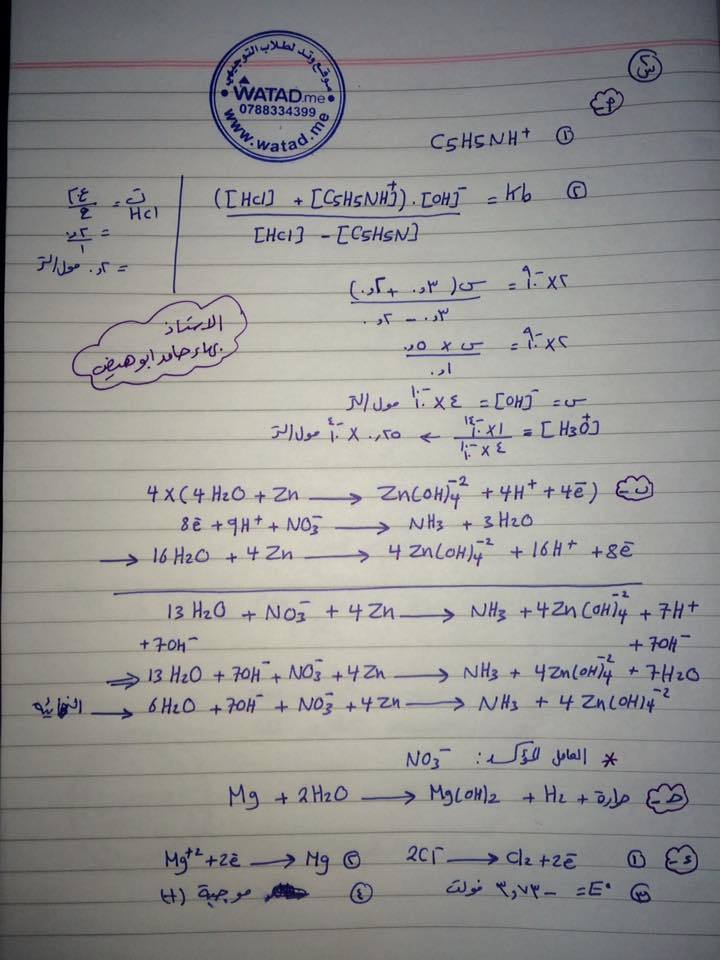 موقع وتد لطلاب التوجيهي
WATAD.me
0788334399
www.watad.me
س٢
أ-
① C5H5NH⁺
② Kb = ([HCl] + [C5H5NH⁺]) . [OH]⁻ / [HCl] - [C5H5N]
ت HCl = ع٢ / ع
= ٢,٠ / ١
= ٢,٠ مول/لتر
٢ × ١٠⁻⁹ = س (٣,٠ + ٢,٠) / ٣,٠ - ٢,٠
٢ × ١٠⁻⁹ = س × ٥,٠ / ١,٠
الاستاذ
س = [OH]⁻ = ٤ × ١٠⁻¹⁰ مول/لتر
[H3O⁺] = ١ × ١٠⁻¹⁴ / ٤ × ١٠⁻¹⁰ ← ٠,٢٥ × ١٠⁻٤ مول/لتر
ب- 4 × (4H2O + Zn ⟶ Zn(OH)4⁻² + 4H⁺ + 4ē)
8ē + 9H⁺ + NO3⁻ ⟶ NH3 + 3H2O
⟶ 16H2O + 4Zn ⟶ 4Zn(OH)4⁻² + 16H⁺ + 8ē
13H2O + NO3⁻ + 4Zn ⟶ NH3 + 4Zn(OH)4⁻² + 7H⁺
+7OH⁻ +7OH⁻
⇒ 13H2O + 7OH⁻ + NO3⁻ + 4Zn ⟶ NH3 + 4Zn(OH)4⁻² + 7H2O
النهائية ⟶ 6H2O + 7OH⁻ + NO3⁻ + 4Zn ⟶ NH3 + 4Zn(OH)4⁻²
* العامل المؤكسد: NO3⁻
ج- Mg + 2H2O ⟶ Mg(OH)2 + H2 + حرارة
د- ① 2Cl⁻ ⟶ Cl2 + 2ē ② Mg⁺² + 2ē ⟶ Mg
③ E° = -٣,٧٣ فولت ④ موجبة (+)